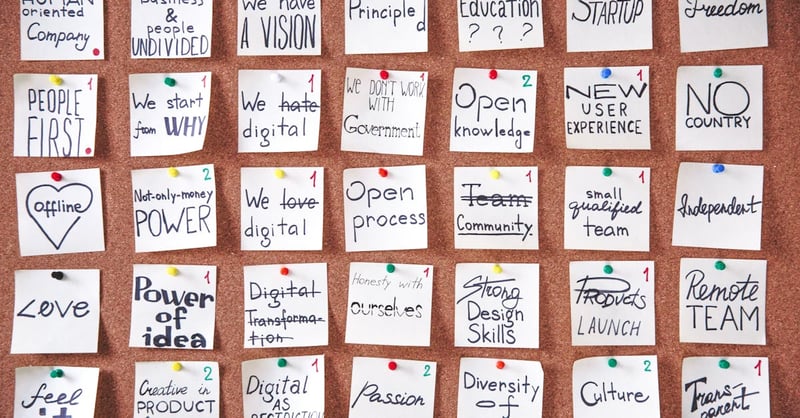 HUMAN
oriented
Company.
Business
&
people
UNDIVIDED
We have
A VISION
Principled
Education
? ? ?
STARTUP
Freedom
1
PEOPLE
FIRST.
1
We start
from WHY
1
We hate
digital
1
We DON'T WORK
WITH
Government
2
Open
knowledge
1
NEW
USER
EXPERIENCE
NO
COUNTRY
offline
2
Not-only-money
POWER
1
We love
digital
Open
process
1
Team
Community.
1
small
qualified
team
Independent
Love
1
Power
of
idea
Digital
Transforma-
tion
1
Honesty with
ourselves
Strong
Design
Skills
1
Products
LAUNCH
Remote
TEAM
feel
it
2
Creative in
PRODUCT
1
Digital
AS
2
Passion
Diversity
of
2
Culture
1
Trans-
parent